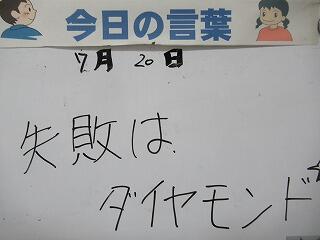 今日の言葉
7月 20日
失敗は
ダイヤモンド